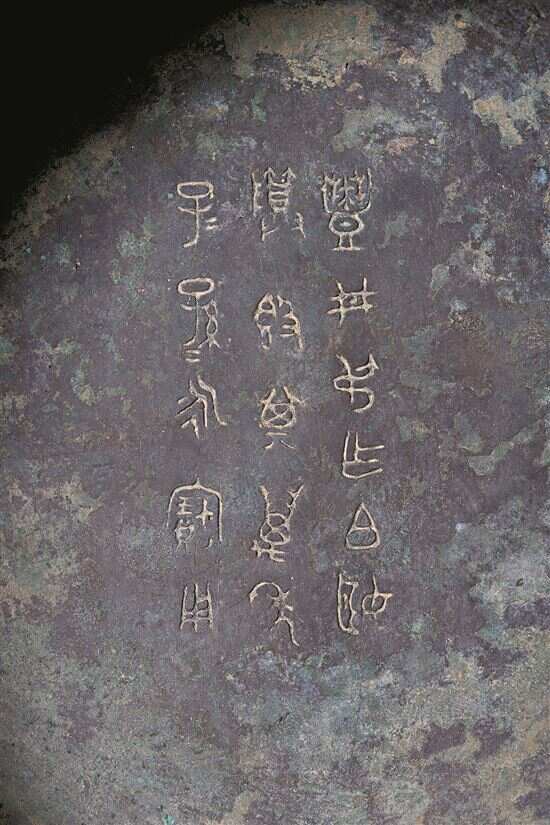 豐井叔作白姬
尊簋其萬年
子子孫孫永寶用